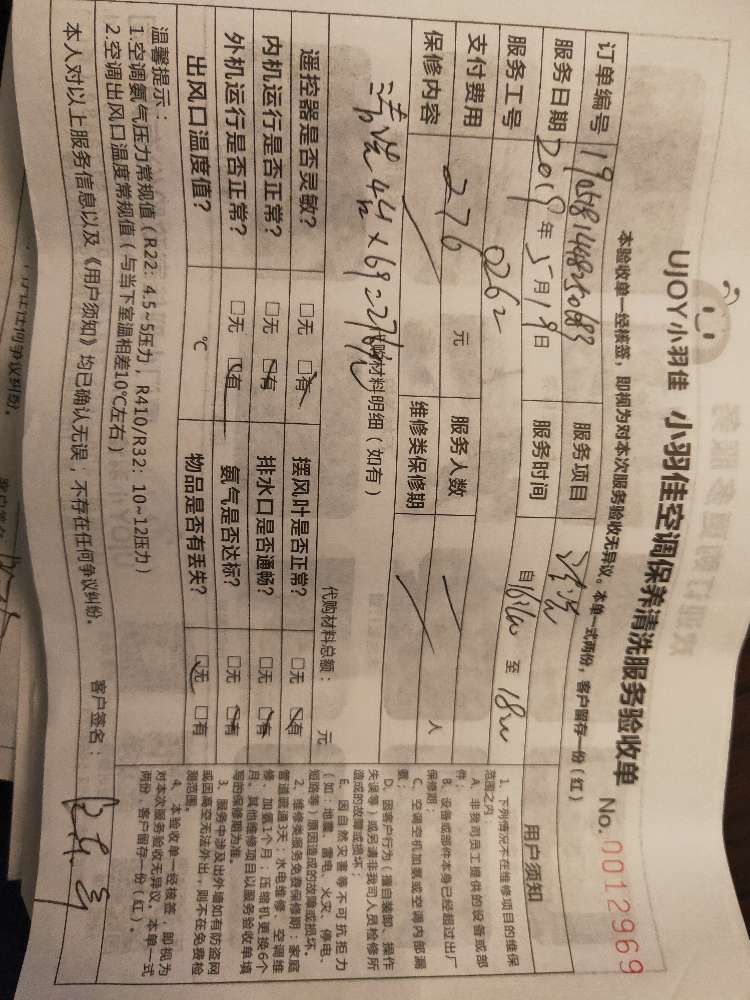 UJOY小羽佳 小羽佳空调保养清洗服务验收单 No. 0012969
本验收单一经核签，即视为对本次服务验收无异议。本单一式两份，客户留存一份(红)
订单编号 服务项目 清洗
服务日期 2019年5月19日 服务时间 自 至
服务工号 0262
支付费用 276 元 服务人数 一 人
保修内容 维修类保修期
代购材料明细（如有）
清洗4台×69=276元
代购材料总额： 元
遥控器是否灵敏？ □无 □有 摆风叶是否正常？ □无 □有
内机运行是否正常？ □无 □有 排水口是否通畅？ □无 □有
外机运行是否正常？ □无 □有 氨气是否达标？ □无 □有
出风口温度值？ ℃ 物品是否有丢失？ □无 □有
温馨提示：
1.空调氨气压力常规值（R22：4.5~5压力，R410/R32：10~12压力）
2.空调出风口温度常规值（与当下室温相差10℃左右）
本人对以上服务信息以及《用户须知》均已确认无误；不存在任何争议纠纷。 客户签名：
用户须知
1、下列情况不在维修项目的维保
范围之内：
A、非我司员工提供的设备或部
件；
B、设备或部件本身已经超过出厂
保修期；
C、空调空机加氨或空调内部漏
氨；
D、因客户行为（擅自装卸、操作
失误等）或另请非我司人员检修所
造成的故障或损坏；
E、因自然灾害等不可抗拒力
（如：地震、雷电、火灾、停电、
短路等）原因造成的故障或损坏。
2、维修类服务免费保修期：家庭
管道疏通3天；水电维修、空调维
修、加氨1个月；压缩机更换6个
月。其他维修项目以服务验收单填
写的保修期为准。
3、服务中涉及出外墙如有防盗网
或因高空无法外出，则不在免费检
测范围。
4、本验收单一经核签，即视为
对本次服务验收无异议。本单一式
两份，客户留存一份（红）。
任何争议纠纷。
客户签名